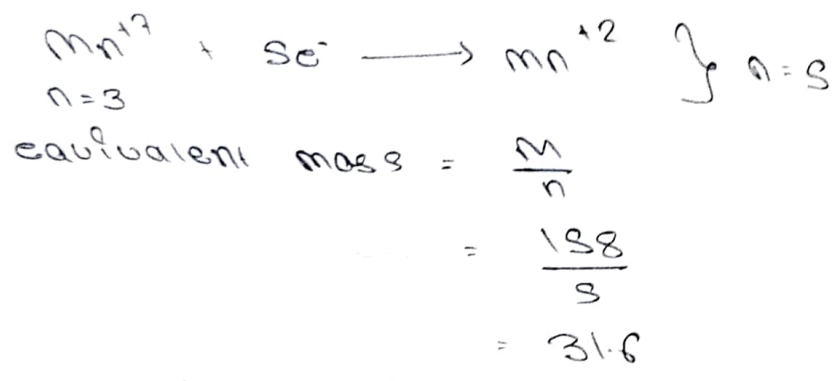 Mn⁺⁷ + 5e⁻ ⟶ Mn⁺² } n = 5
n = 3
equivalent mass = M/n
= 158/5
= 31.6